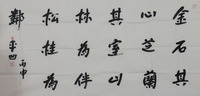 金石其
心芝蘭
其室山
林為伴
松桂為
鄰
丙申
平凹